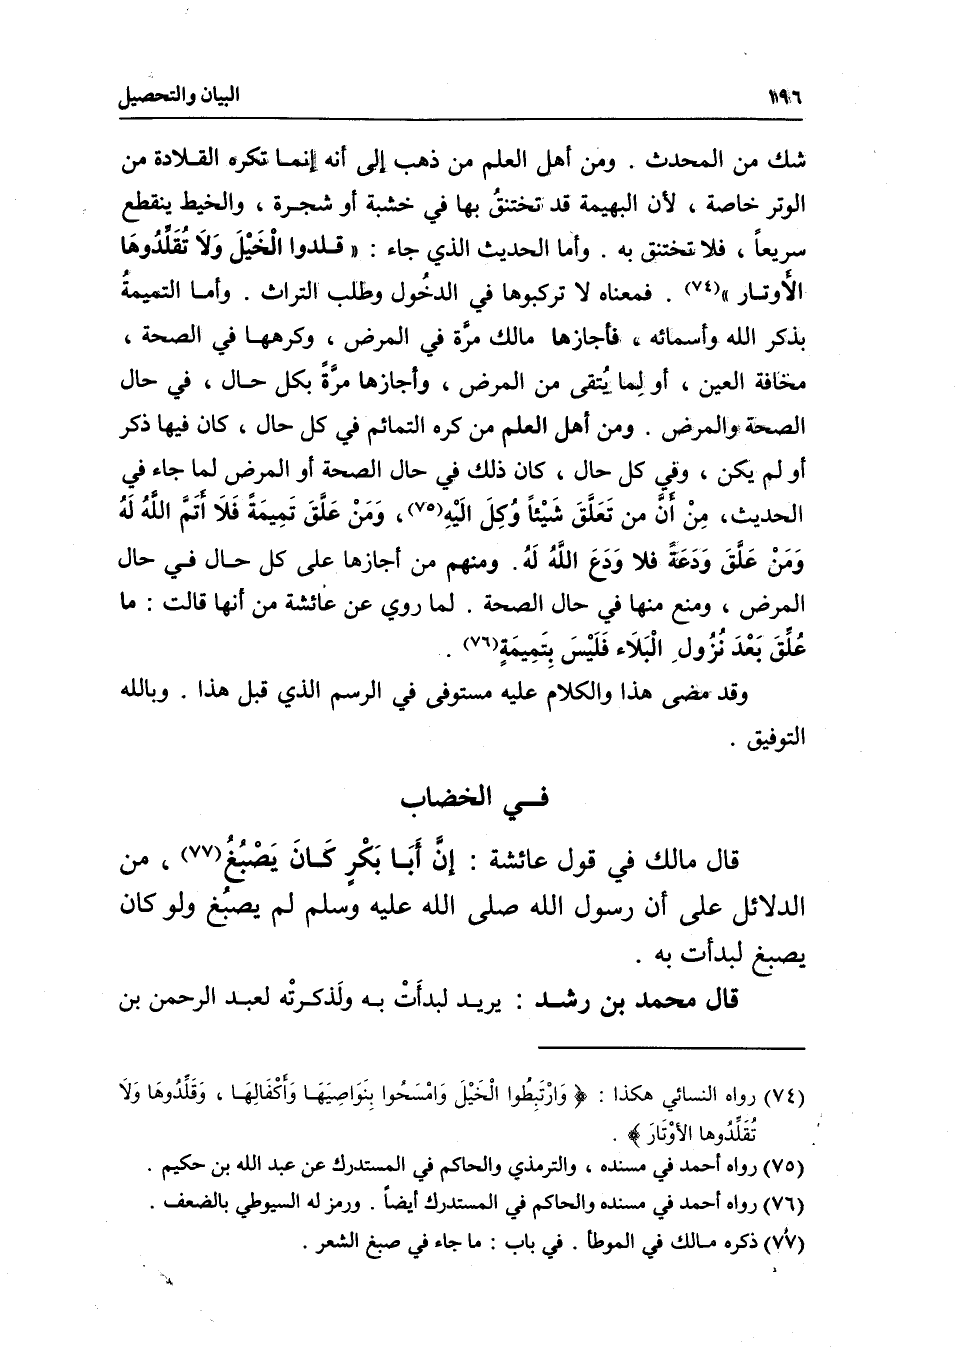 ١٩٦ البيان والتحصيل
شك من المحدث . ومن أهل العلم من ذهب إلى أنه إنمـا تكره القـلادة من
الوتر خاصة ، لأن البهيمة قد تختنقُ بها في خشبة أو شجـرة ، والخيط ينقطع
سريعاً ، فلا تختنق به . وأما الحديث الذي جاء : « قـلدوا الْخَيْلَ وَلَا تُقَلِّدُوهَا
الأَوتـار »(٧٤) . فمعناه لا تركبوها في الدخُول وطلب التراث . وأمـا التميمةُ
بذكر الله وأسمائه ، فأجازها مالك مرَّة في المرض ، وكرههـا في الصحة ،
مخافة العين ، أو لِما يُتقى من المرض ، وأجازها مرَّةً بكل حـال ، في حال
الصحة والمرض . ومن أهل العلم من كره التمائم في كل حال ، كان فيها ذكر
أو لم يكن ، وفي كل حال ، كان ذلك في حال الصحة أو المرض لما جاء في
الحديث، مِنْ أَنَّ من تَعَلَّقَ شَيْئاً وُكِلَ الَيْهِ(٧٥)، وَمَنْ عَلَّقَ تَمِيمَةً فَلَا أَتَمَّ اللَّهُ لَهُ
وَمَنْ عَلَّقَ وَدَعَةً فلا وَدَعَ اللَّهُ لَهُ. ومنهم من أجازها على كل حـال فـي حال
المرض ، ومنع منها في حال الصحة . لما روي عن عائشة من أنها قالت : ما
عُلِّقَ بَعْدَ نُزُولِ الْبَلَاء فَلَيْسَ بِتَمِيمَةٍ(٧٦) .
وقد مضى هذا والكلام عليه مستوفى في الرسم الذي قبل هذا . وبالله
التوفيق .
فـي الخضاب
قال مالك في قول عائشة : إنَّ أَبَـا بَكْرٍ كَـانَ يَصْبُغُ(٧٧) ، من
الدلائل على أن رسول الله صلى الله عليه وسلم لم يصبُغ ولو كان
يصبغ لبدأت به .
قال محمد بن رشـد : يريـد لبدأَتْ بـه ولَذكـرتْه لعبـد الرحمن بن
(٧٤) رواه النسائي هكذا : ﴿ وَارْتَبِطُوا الْخَيْلَ وَامْسَحُوا بِنَوَاصِيَهَـا وَأَكْفَالِهَـا ، وَقَلِّدُوهَا وَلَا
تُقَلِّدُوها الأَوْتَارَ ﴾ .
(٧٥) رواه أحمد في مسنده ، والترمذي والحاكم في المستدرك عن عبد الله بن حكيم .
(٧٦) رواه أحمد في مسنده والحاكم في المستدرك أيضاً . ورمز له السيوطي بالضعف .
(٧٧) ذكره مـالك في الموطأ . في باب : ما جاء في صبغ الشعر .